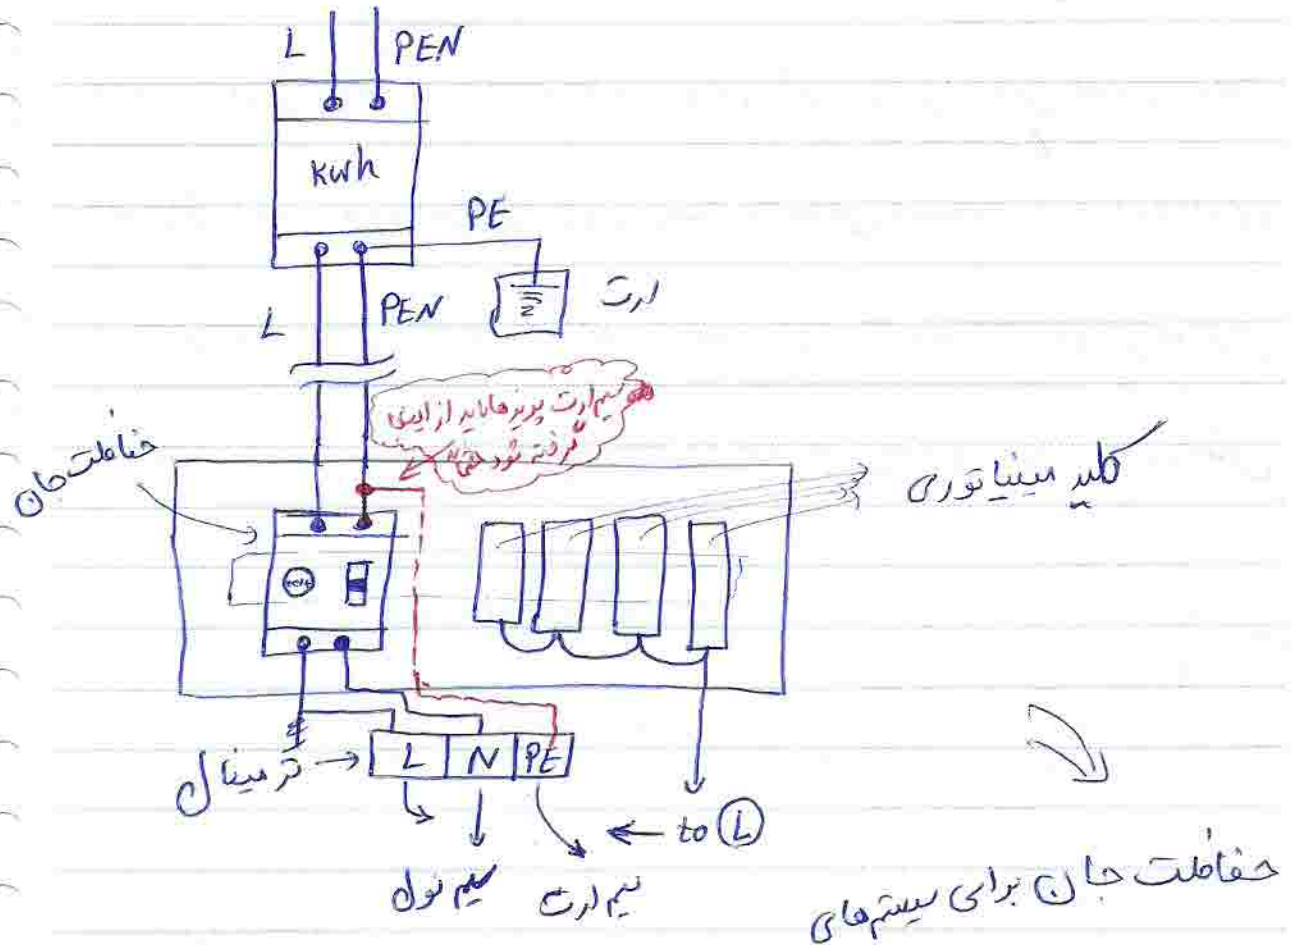 L PEN
kwh
PE
L PEN ارت
سیم ارت پریزها باید از اینجا
گرفته شود حتماً
حفاظت جان
کلید مینیاتوری
test
ترمینال → L N PE
← to L
سیم نول
سیم ارت
حفاظت جان برای سیستم‌های